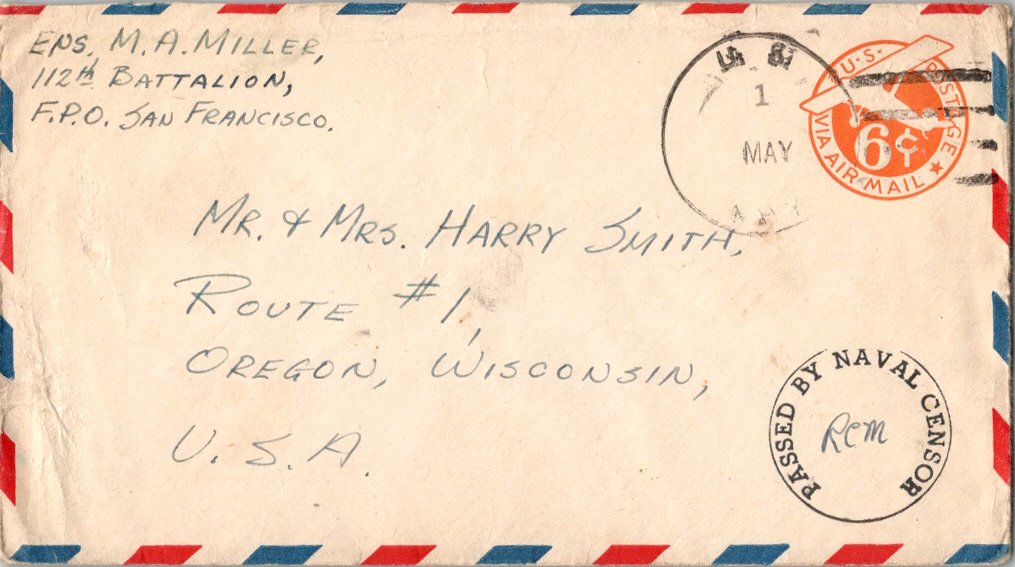 ENS. M. A. MILLER,
112th BATTALION,
F.P.O. SAN FRANCISCO.
1
MAY
U.S. POSTAGE
6¢
VIA AIR MAIL
MR. & MRS. HARRY SMITH,
ROUTE #1,
OREGON, WISCONSIN,
U. S. A.
PASSED BY NAVAL CENSOR
RCM